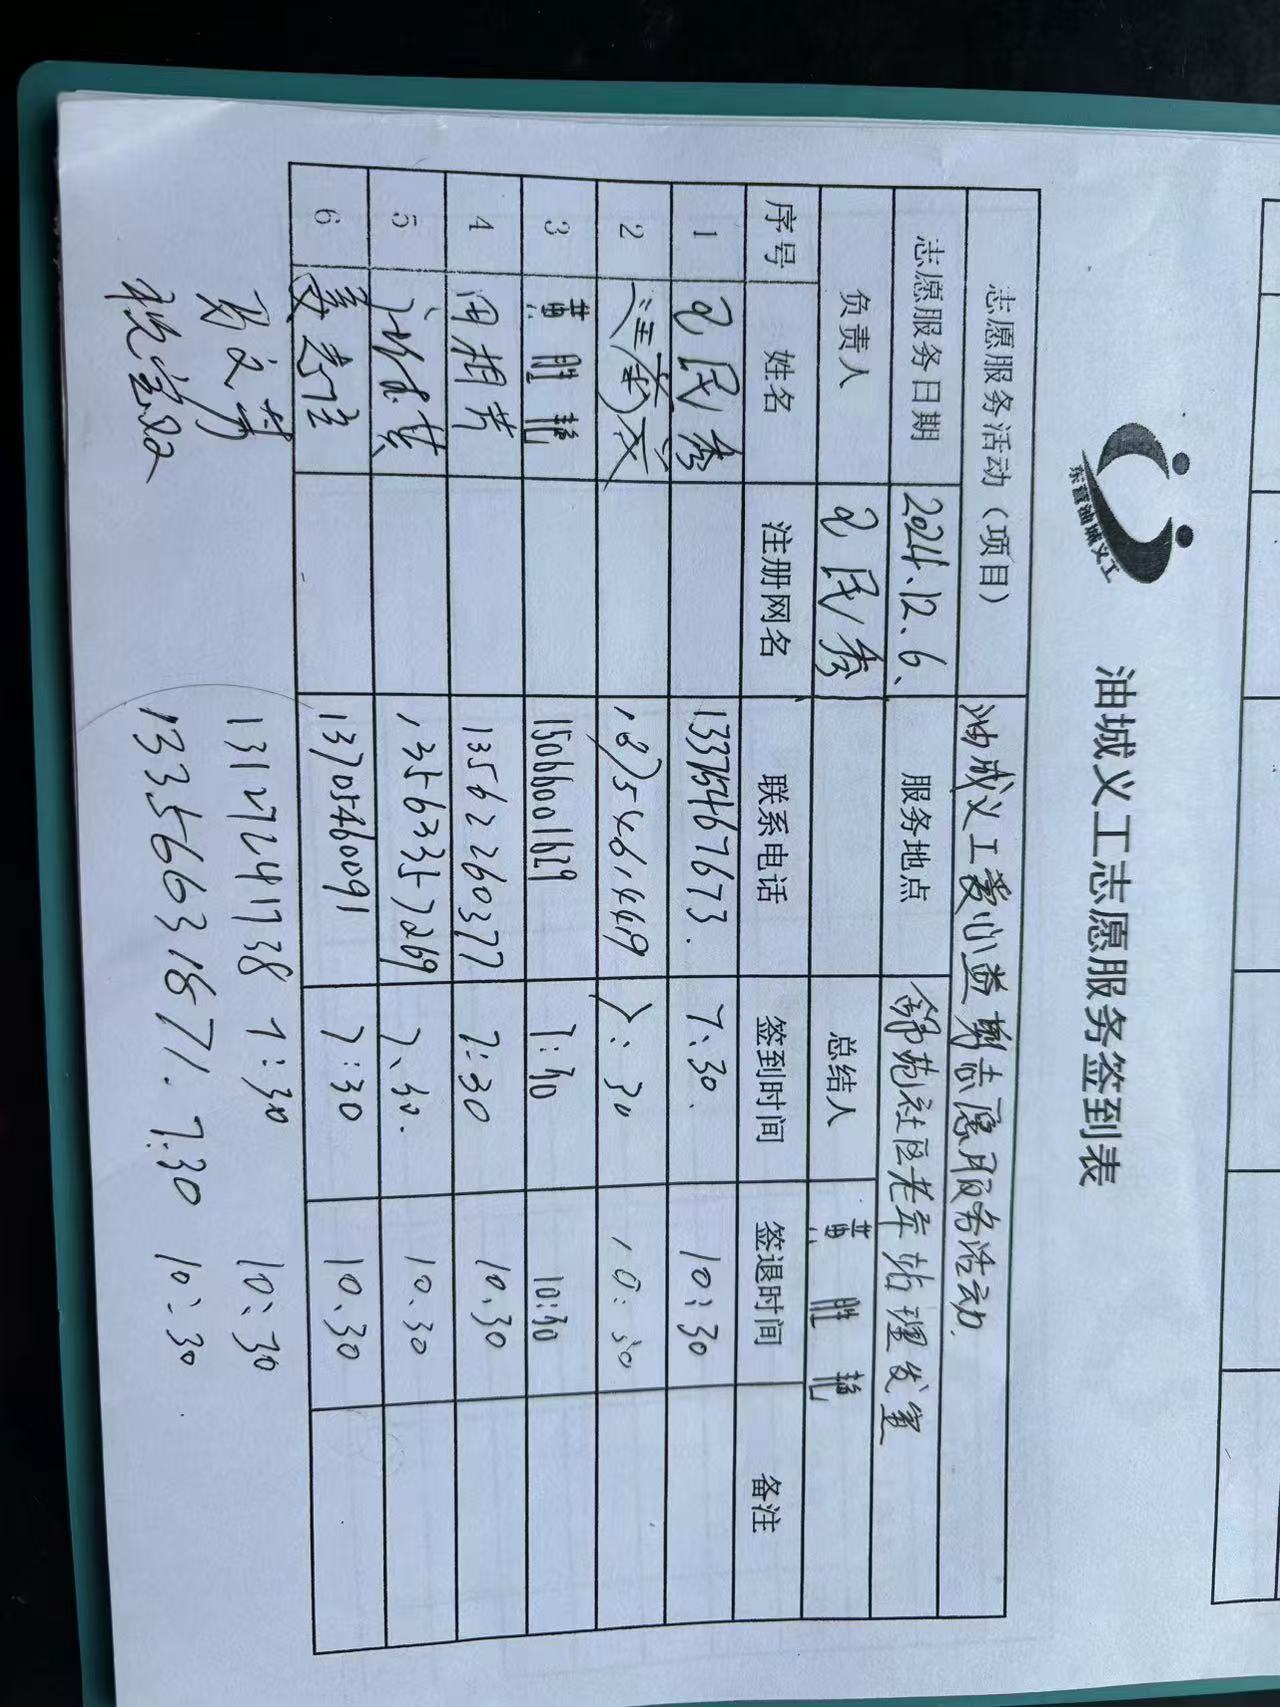 东营油城义工
油城义工志愿服务签到表
志愿服务活动（项目） 油城义工爱心益剪志愿服务活动.
志愿服务日期 2024.12.6. 服务地点 锦苑社区老年站理发室
负责人 民秀 总结人 黄胜艳
序号 姓名 注册网名 联系电话 签到时间 签退时间 备注
1 民秀 13375467673. 7:30. 10:30
2 18754661449 7:30 10:30
3 黄胜艳 15066001629 7:30 10:30
4 田相芳 13562260377 7:30 10.30
5 13563357269 7.30. 10.30
6 13705460091 7:30 10.30
文芳 13127241738 7:30 10:30
13356631671. 7:30 10:30